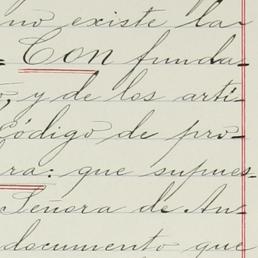 no existe la
= Con funda-
o, y de los artí-
Código de pro-
ra: que supues-
Señora de An-
documento que